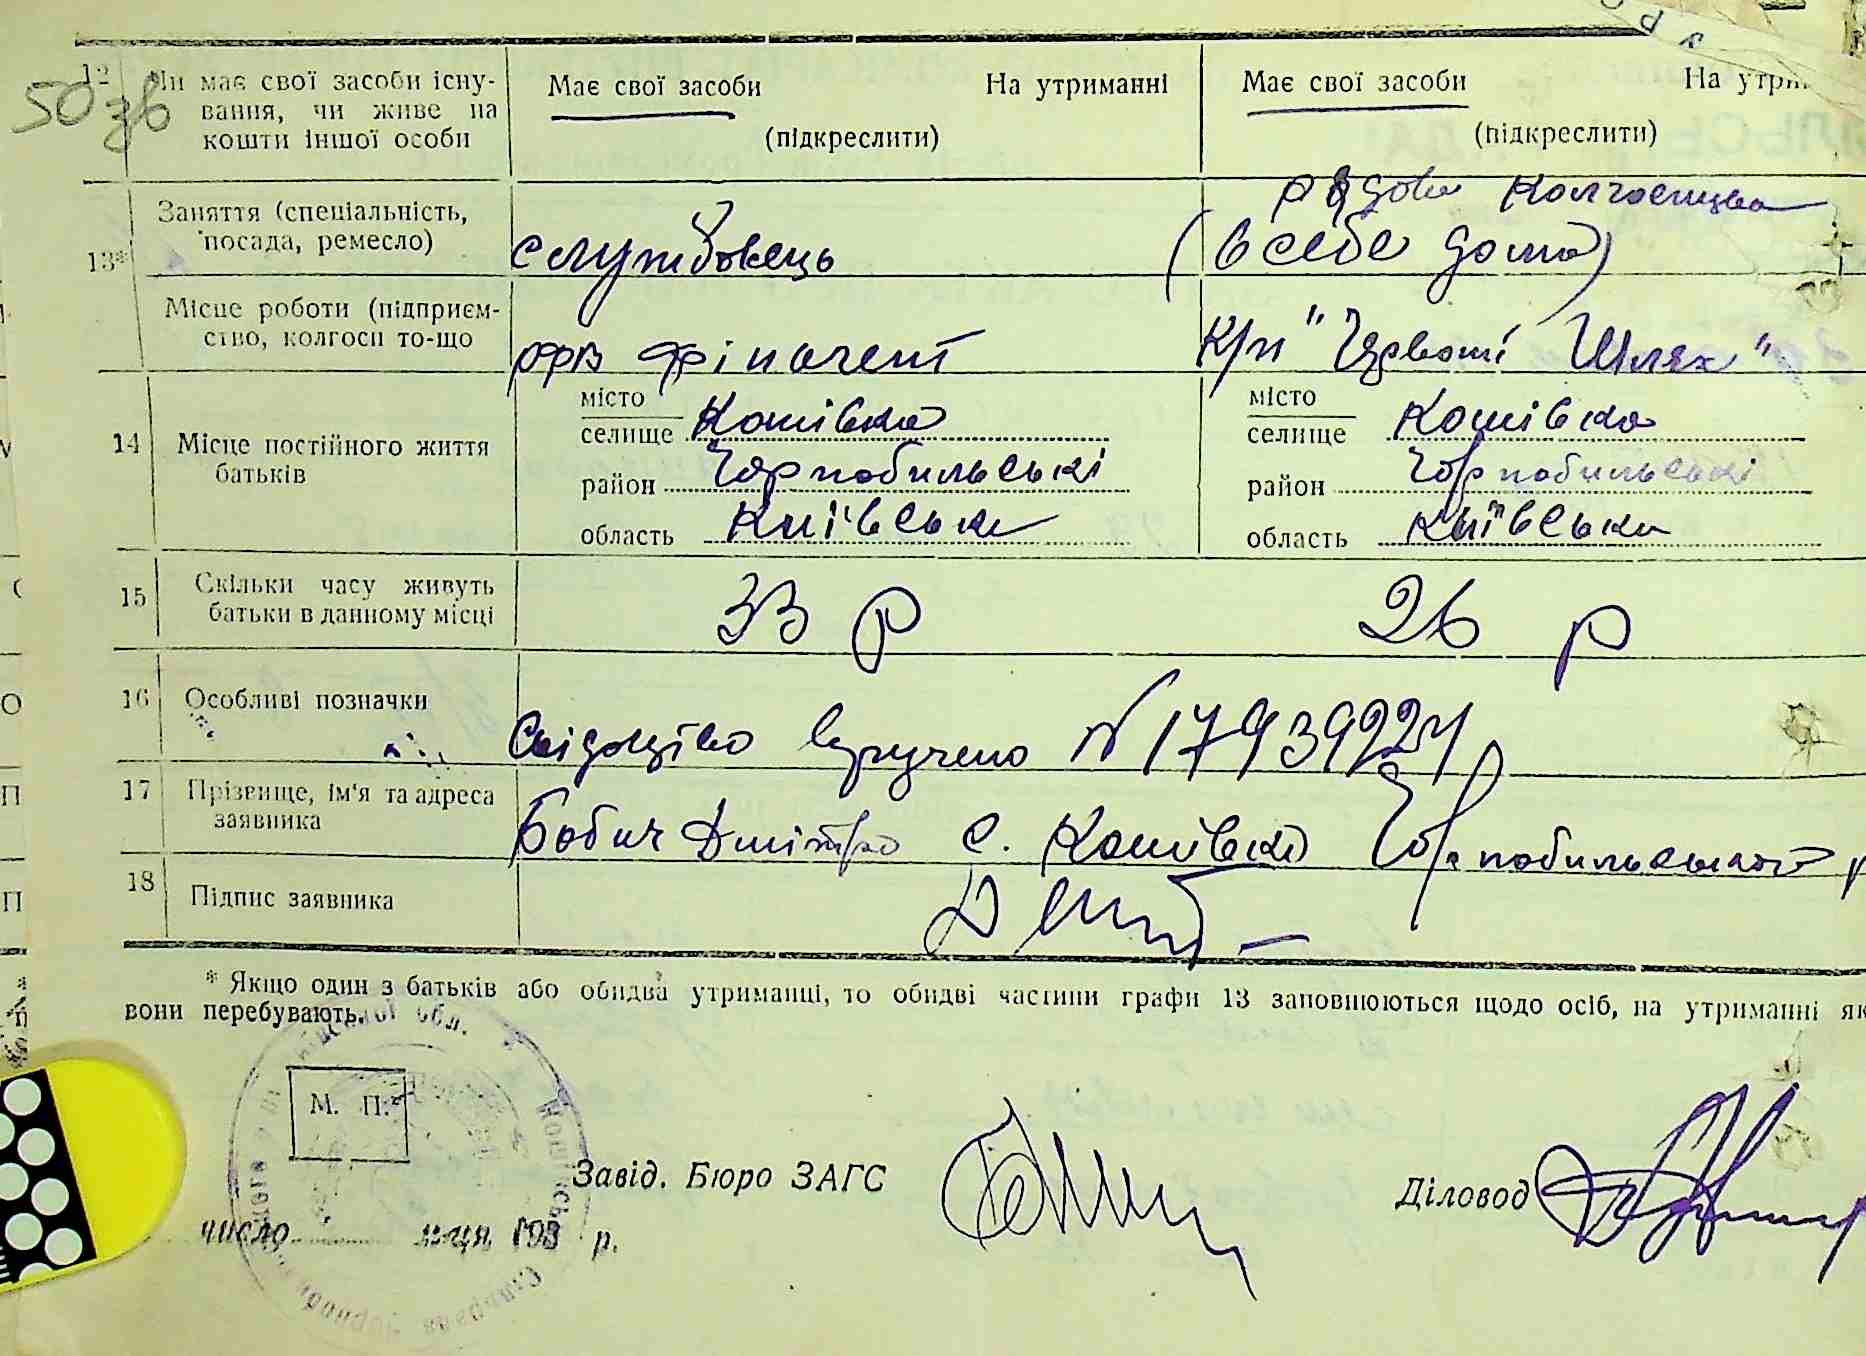 50 зв
12 Чи має свої засоби існування, чи живе на кошти іншої особи
Має свої засоби На утриманні
(підкреслити)
Має свої засоби На утрим
(підкреслити)
13* Заняття (спеціальність, посада, ремесло)
службовець
рядова колгоспниця
(в себе дома)
Місце роботи (підприємство, колгосп то-що
фінагент
К/п "Червоні Шлях"
14 Місце постійного життя батьків
місто
селище Кошівка
район Чорнобильські
область Київська
місто
селище Кошівка
район Чорнобильські
область Київська
15 Скільки часу живуть батьки в данному місці
33 р
26 р
16 Особливі позначки
Свідоцтво вручено № 17939224
17 Прізвище, ім'я та адреса заявника
Бобич Дмітро с. Кошівка Чорнобильського р
18 Підпис заявника
* Якщо один з батьків або обидва утриманці, то обидві частини графи 13 заповнюються щодо осіб, на утриманні як
вони перебувають.
М. П.
Завід. Бюро ЗАГС
Діловод
число м-ця 193 р.